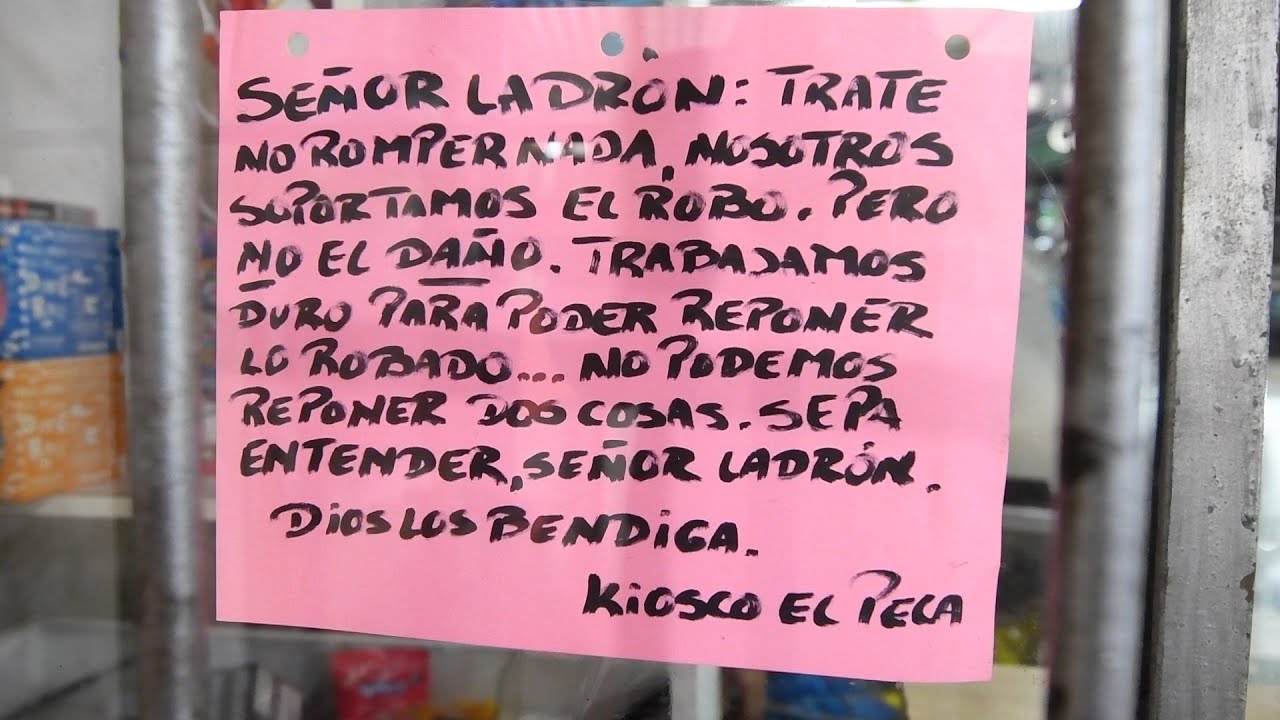 SEÑOR LADRÓN: TRATE
NO ROMPER NADA, NOSOTROS
SOPORTAMOS EL ROBO. PERO
NO EL DAÑO. TRABAJAMOS
DURO PARA PODER REPONER
LO ROBADO... NO PODEMOS
REPONER DOS COSAS. SEPA
ENTENDER, SEÑOR LADRÓN.
DiOS LOS BENDiGA.
KiOSCO EL PECA